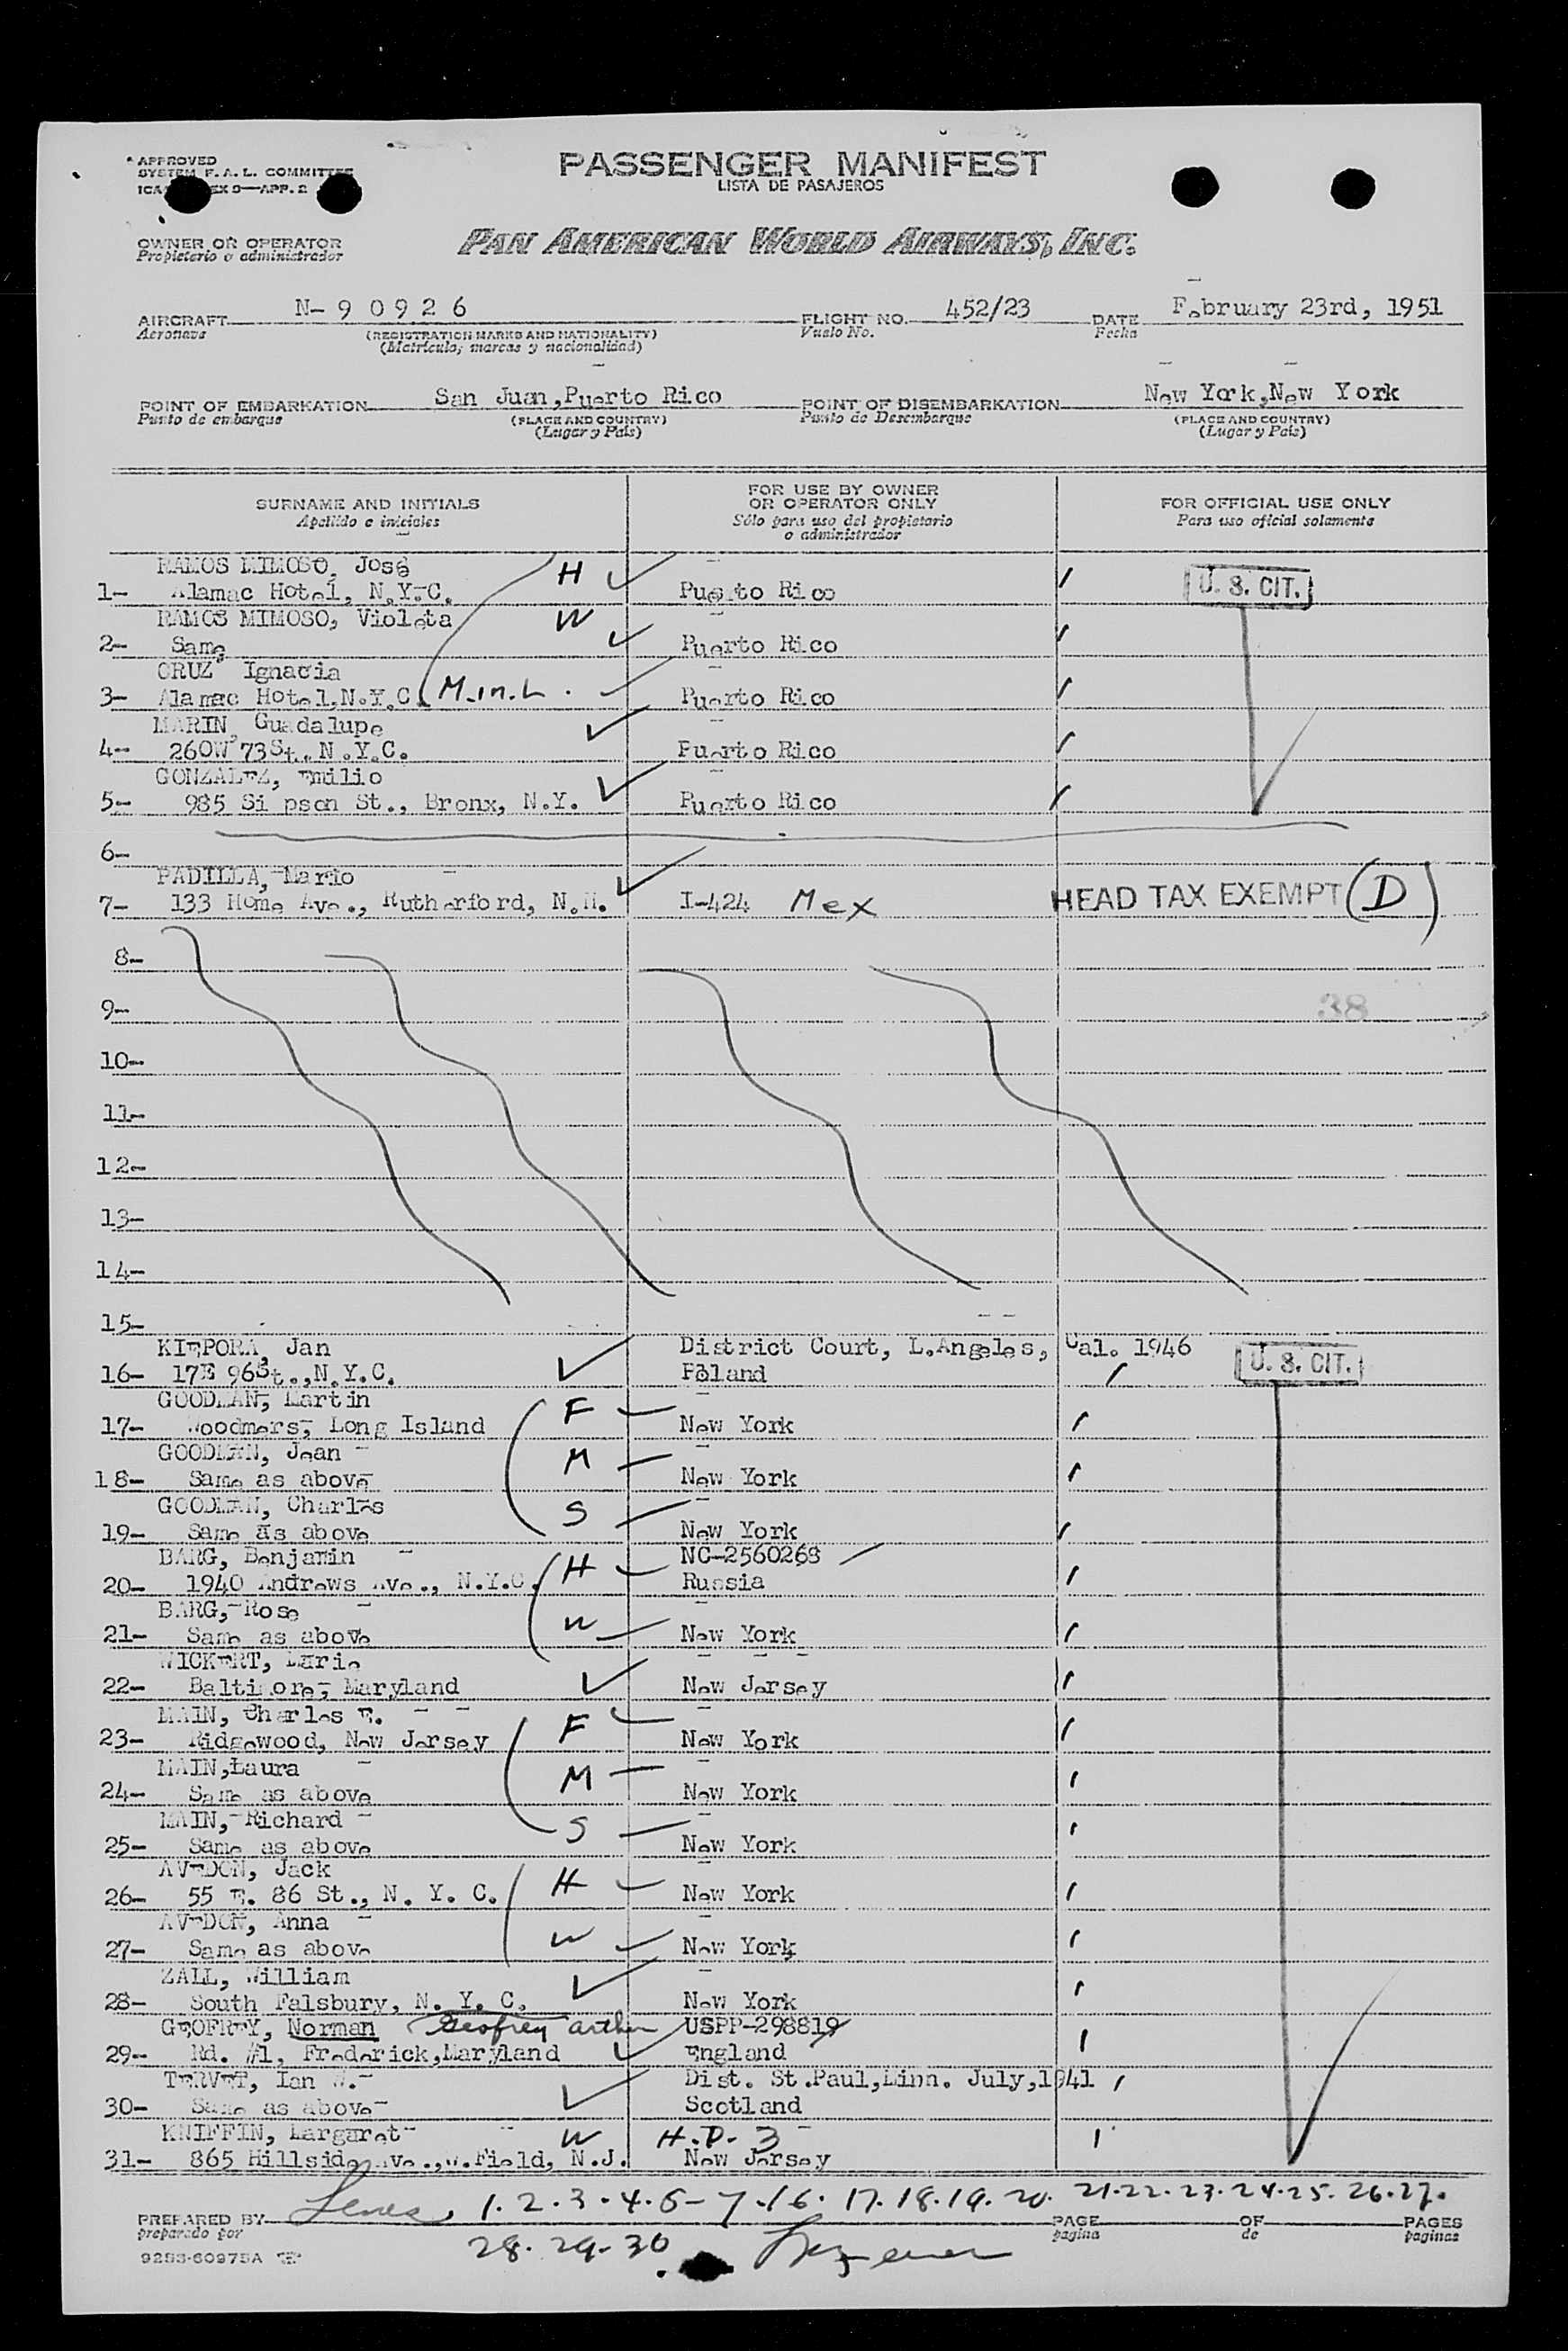 APPROVED
SYSTEM F. A. L. COMMITTEE
9—APP. 2
PASSENGER MANIFEST
LISTA DE PASAJEROS
OWNER OR OPERATOR
Propietario o administrador
PAN AMERICAN WORLD AIRWAYS, INC.
AIRCRAFT N-90926 FLIGHT NO. 452/23 DATE February 23rd, 1951
Aeronave (REGISTRATION MARKS AND NATIONALITY) Vuelo No. Fecha
(Matrícula; marcas y nacionalidad)
POINT OF EMBARKATION San Juan,Puerto Rico POINT OF DISEMBARKATION New York,New York
Punto de embarque (PLACE AND COUNTRY) Punto de Desembarque (PLACE AND COUNTRY)
(Lugar y País) (Lugar y País)
SURNAME AND INITIALS FOR USE BY OWNER OR OPERATOR ONLY FOR OFFICIAL USE ONLY
Apellido e iniciales Sólo para uso del propietario o administrador Para uso oficial solamente
RAMOS MIMOSO, José H
1- Alamac Hotel, N.Y.C. Puerto Rico U. S. CIT.
RAMOS MIMOSO, Violeta W
2- Same Puerto Rico
CRUZ, Ignacia
3- Alamac Hotel,N.Y.C. M.in.L. Puerto Rico
MARIN, Guadalupe
4- 260W 73St. N.Y.C. Puerto Rico
GONZALEZ, Emilio
5- 985 Si pson St., Bronx, N.Y. Puerto Rico
6-
PADILLA, Mario
7- 133 Home Ave., Rutherford, N. I-424 Mex HEAD TAX EXEMPT (D)
8-
9- 38
10-
11-
12-
13-
14-
15-
KIEPORA, Jan District Court, L.Angeles, Cal. 1946
16- 17E 96St.,N.Y.C. Poland U. S. CIT.
GOODMAN, Martin F
17- Woodmers, Long Island New York
GOODMAN, Jean M
18- Same as above New York
GOODMAN, Charles S
19- Same as above New York
BARG, Benjamin H NC-2560268
20- 1940 Andrews Ave., N.Y.C. Russia
BARG, Rose W
21- Same as above New York
WICKERT, Marie
22- Baltimore, Maryland New Jersey
MAIN, Charles E. F
23- Ridgewood, New Jersey New York
MAIN,Laura M
24- Same as above New York
MAIN, Richard S
25- Same as above New York
AVEDON, Jack H
26- 55 E. 86 St., N. Y. C. New York
AVEDON, Anna W
27- Same as above New York
ZALL, William
28- South Falsbury, N. Y. C. New York
GEOFREY, Norman Geofrey arthur USPP-298819
29- Rd. #1, Frederick,Maryland England
TERVET, Ian W. Dist. St.Paul,Minn. July,1941
30- Same as above Scotland
KNIFFIN, Margaret W H.D. 3
31- 865 Hillside Ave.,W.Field, N.J. New Jersey
PREPARED BY 1.2.3.4.5-7.16.17.18.19.20.21.22.23.24.25.26.27. PAGE OF PAGES
preparado por 28.29.30 pagina de paginas
9253-60975A